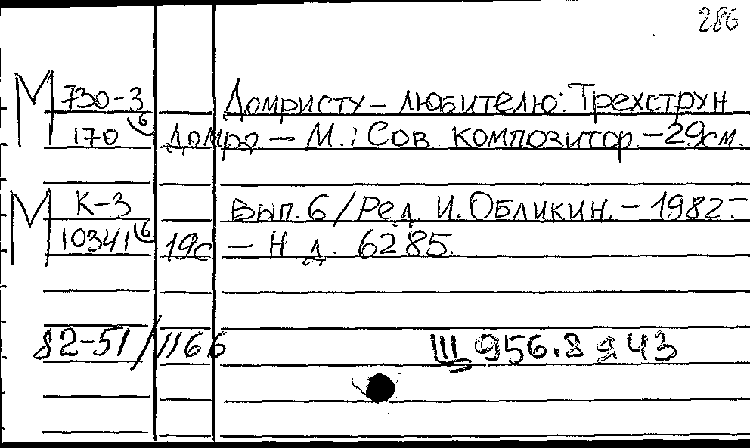 286
М 730-3 6 Домристу - любителю: Трехструн
170 домра - М.: Сов композитор. - 29см.
М К-3 Вып. 6 / Ред. И. Обликин. - 1982. -
10341 6 19с - Н д. 6285.
82-51/1166 Ш 956.8 я 43